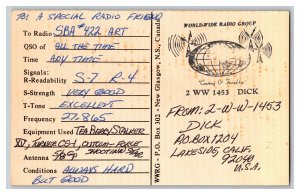 TO: A SPECIAL RADIO FRIEND
To Radio SBA #422 ART
QSO of ALL THE TIME
Time ANY TIME
Signals:
R-Readability S-7 R-4
S-Strength VERY GOOD
T-Tone EXCELLENT
Frequency 27-865
Equipment Used TEABERRY STALKER
XV, TURNER CB-1, CUTTIN-FORCE
Antenna
Conditions ALWAYS HARD
BUT GOOD
WWRG - P.O. BOX 102 - New Glasgow, N.S., Canada
WORLD-WIDE RADIO GROUP
2 WW 1453 DICK
FROM: 2-W-W-1453
DICK
P.O. BOX 1204
LAKESIDE, CALIF.
92040
U.S.A.